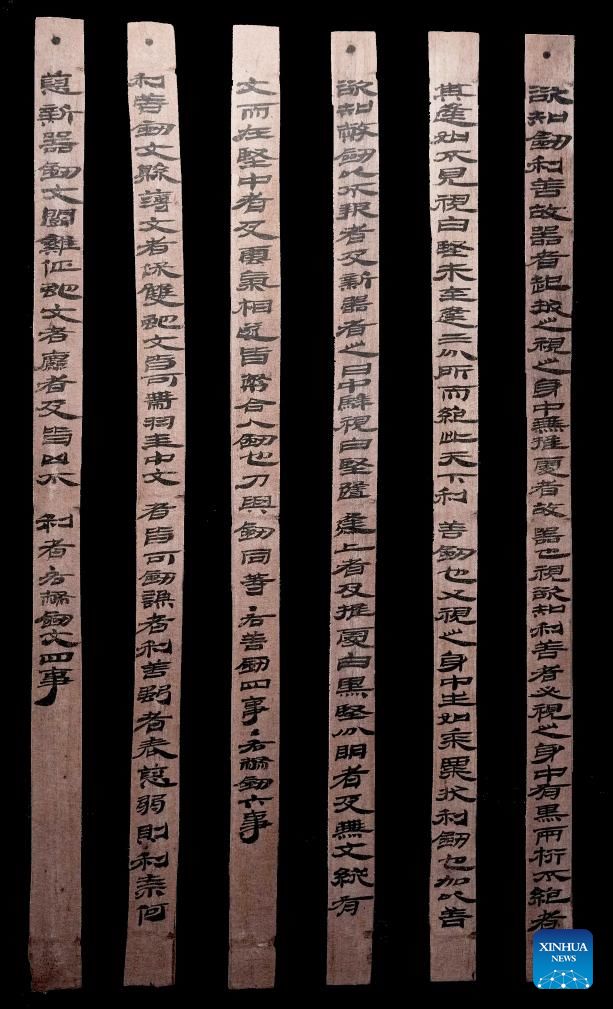 欲知劍利善故器者起拔之視之身中無推處者故器也視欲知利善者必視之身中有黑兩桁不絕者
其逢如不見視白堅未至逢三分所而絕此天下利善劍也又視之身中生如黍粟狀利劍也加以善
欲知幣劍以不報者及新器者之日中騂視白堅隨逢上者及推處白黑堅分明者及無文縱有
文而在堅中者及雲氣相遂皆幣合人劍也刀與劍同等·右善劍四事·右幣劍六事
利善劍文縣薄文者保雙蛇文皆可帶羽圭中文者皆可劍謙者利善強者表恙弱則利奈何
恙新器劍文鬭雞佂蛇文者麤者及皆凶不利者右幣劍文四事
XINHUA
NEWS